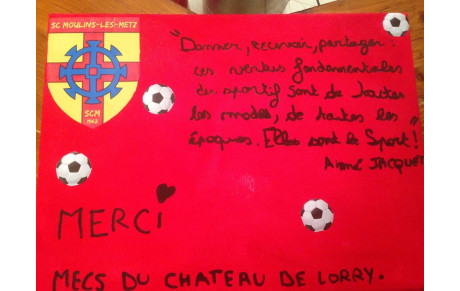 SC MOULINS-LES-METZ
SCM
"Donner, recevoir, partager :
ces vertus fondamentales
du sportif sont de toutes
les modes, de toutes les
époques. Elles sont le Sport !"
Aimé JACQUET
MERCi
MECS DU CHATEAU DE LORRY.